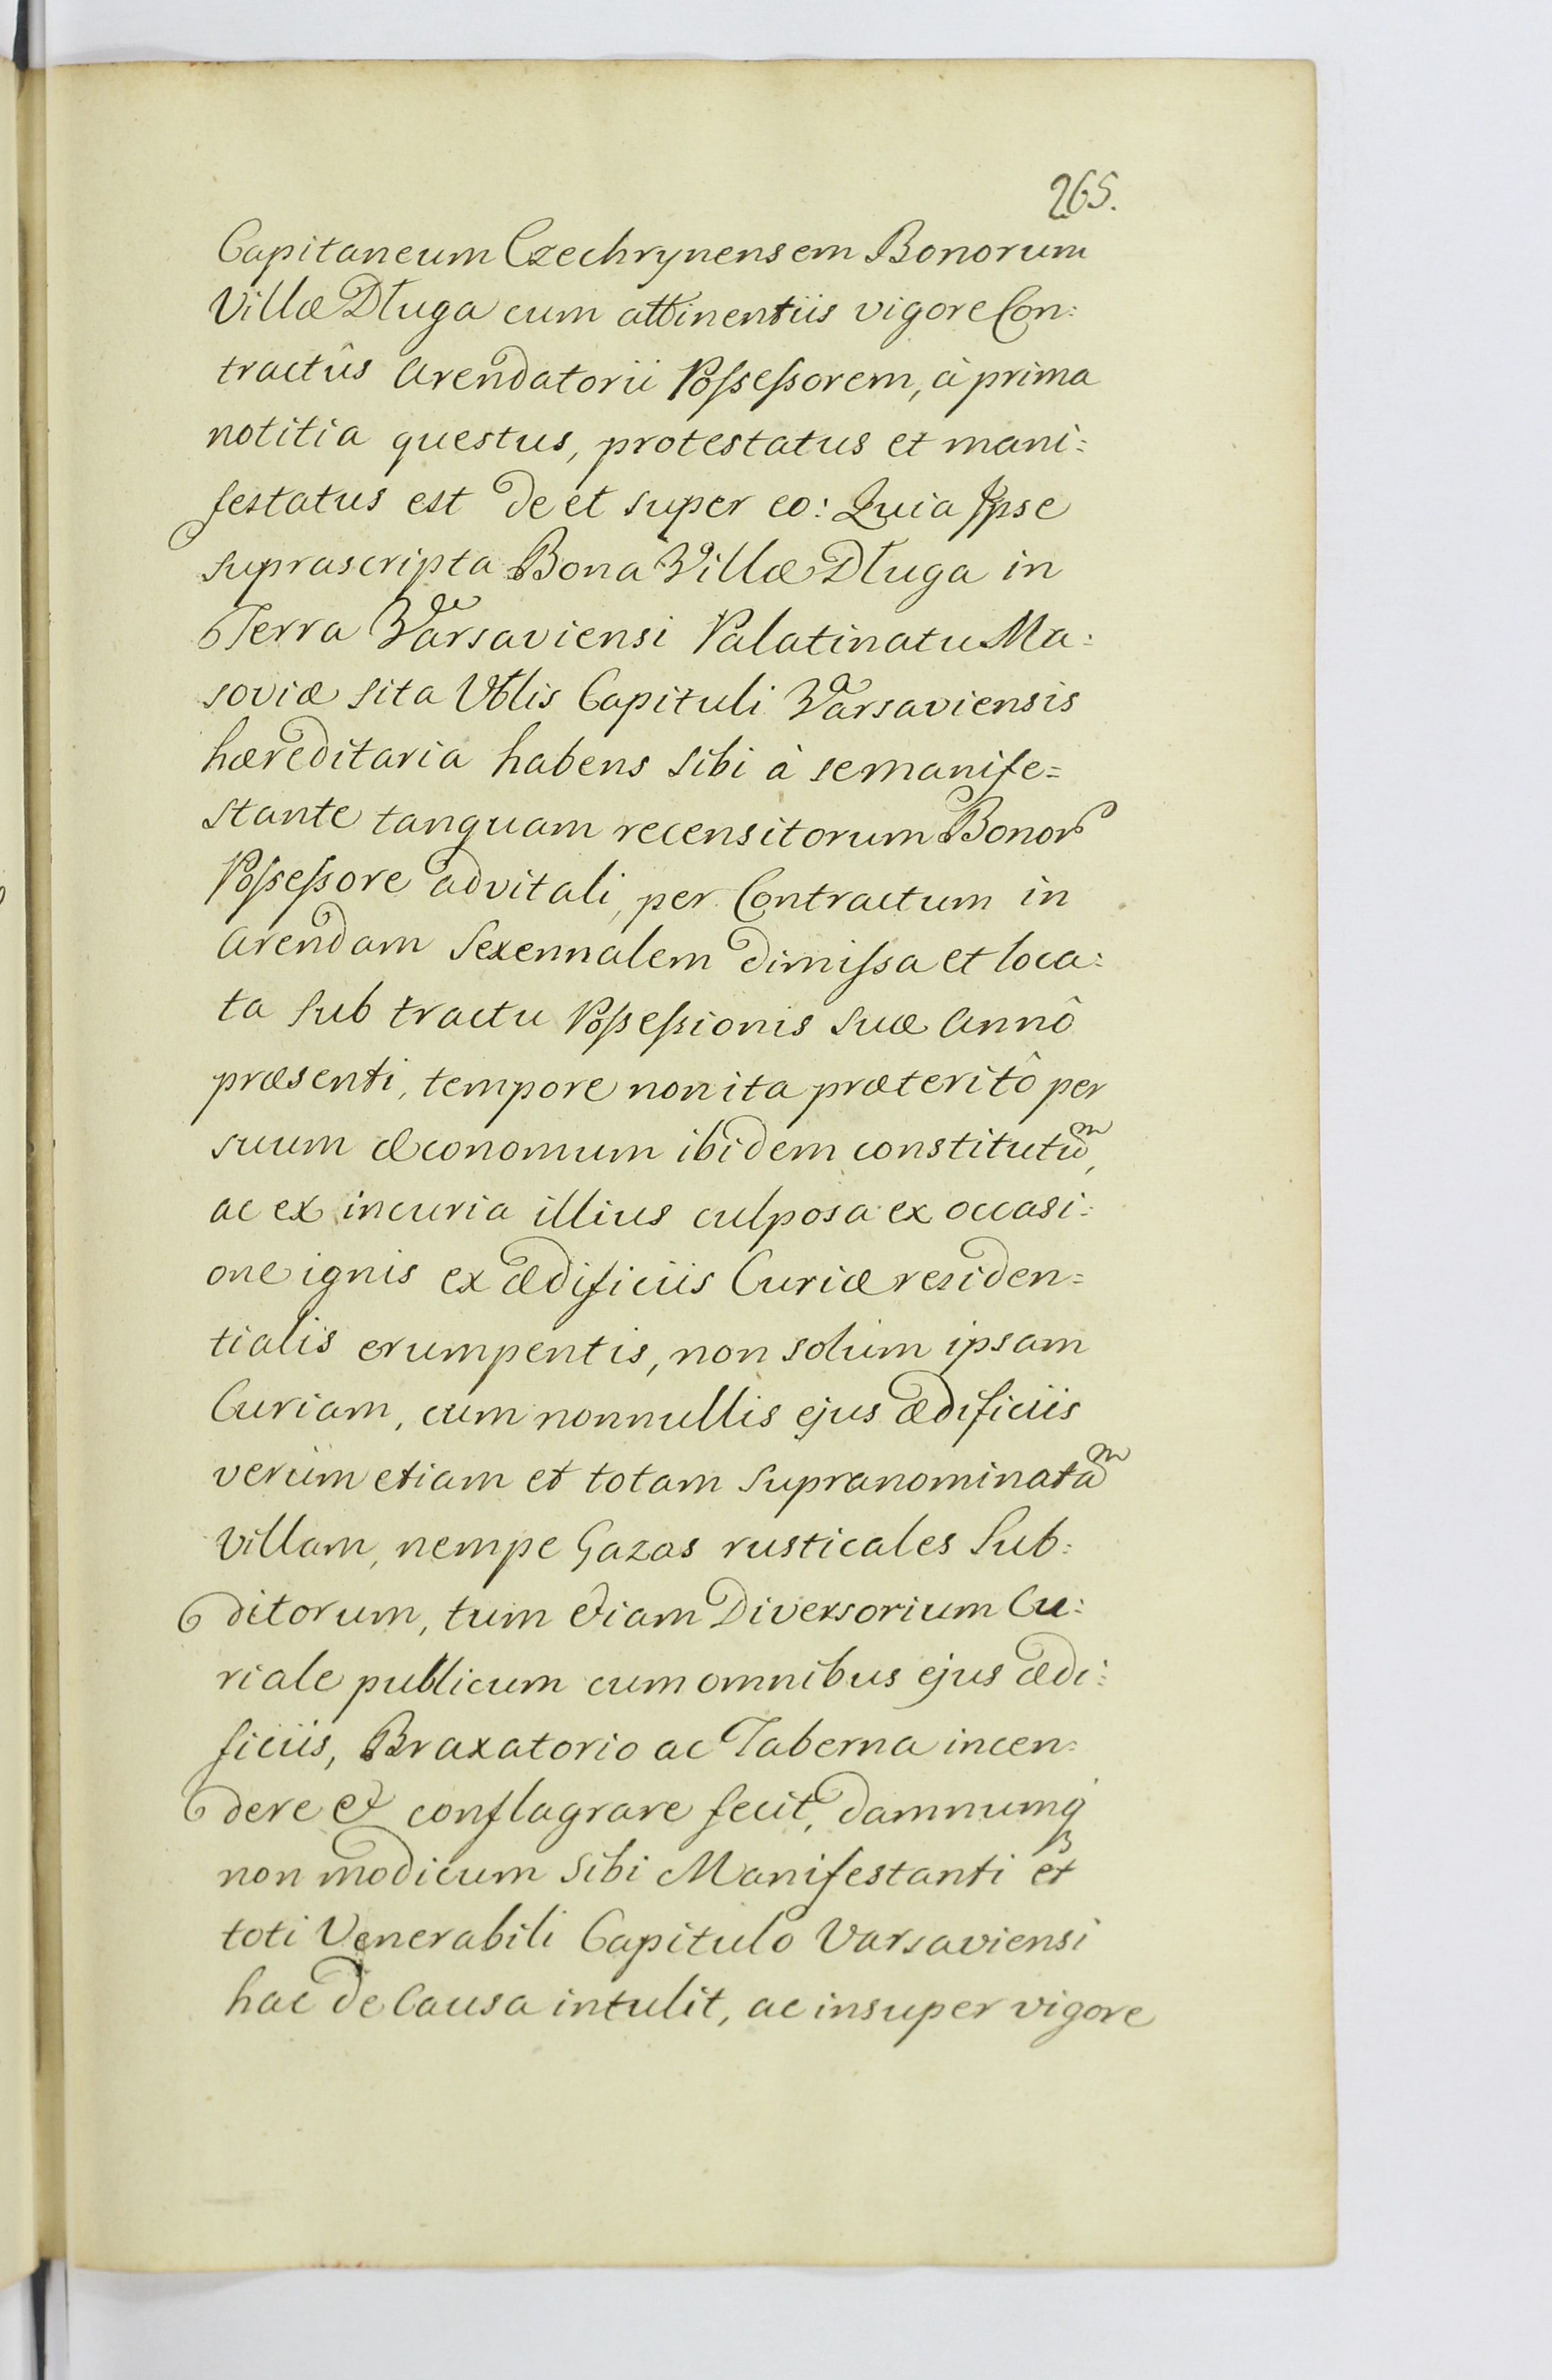 265.
Capitaneum Czechrynensem Bonorum
Villæ Długa cum attinentiis vigore Con:
tractûs Arendatorii Possessorem, à prima
notitia questus, protestatus et mani:
festatus est de et super eo: Quia Ipse
suprascripta Bona Villæ Długa in
Terra Varsaviensi Palatinatu Ma:
soviæ sita Vblis Capituli Varsaviensis
hæreditaria habens sibi à se manife=
stante tanquam recensitorum Bonor
Possessore advitali, per Contractum in
Arendam Sexennalem dimissa et loca:
ta sub tractu Possessionis suæ Annô
præsenti, tempore non ita præteritô per
suum Œconomum ibidem constitutum,
ac ex incuria illius culposa ex occasi:
one ignis ex ædificiis Curiæ residen=
tialis erumpentis, non solùm ipsam
Curiam, cum nonnullis ejus ædificiis
verùm etiam et totam supranominatam
Villam, nempe Gazas rusticales Sub:
ditorum, tum etiam Diversorium Cu:
riale publicum cum omnibus ejus ædi:
ficiis, Braxatorio ac Taberna incen:
dere et conflagrare fecit, damnumq
non modicum sibi Manifestanti et
toti Venerabili Capitulo Varsaviensi
hac de Causa intulit, ac insuper vigore